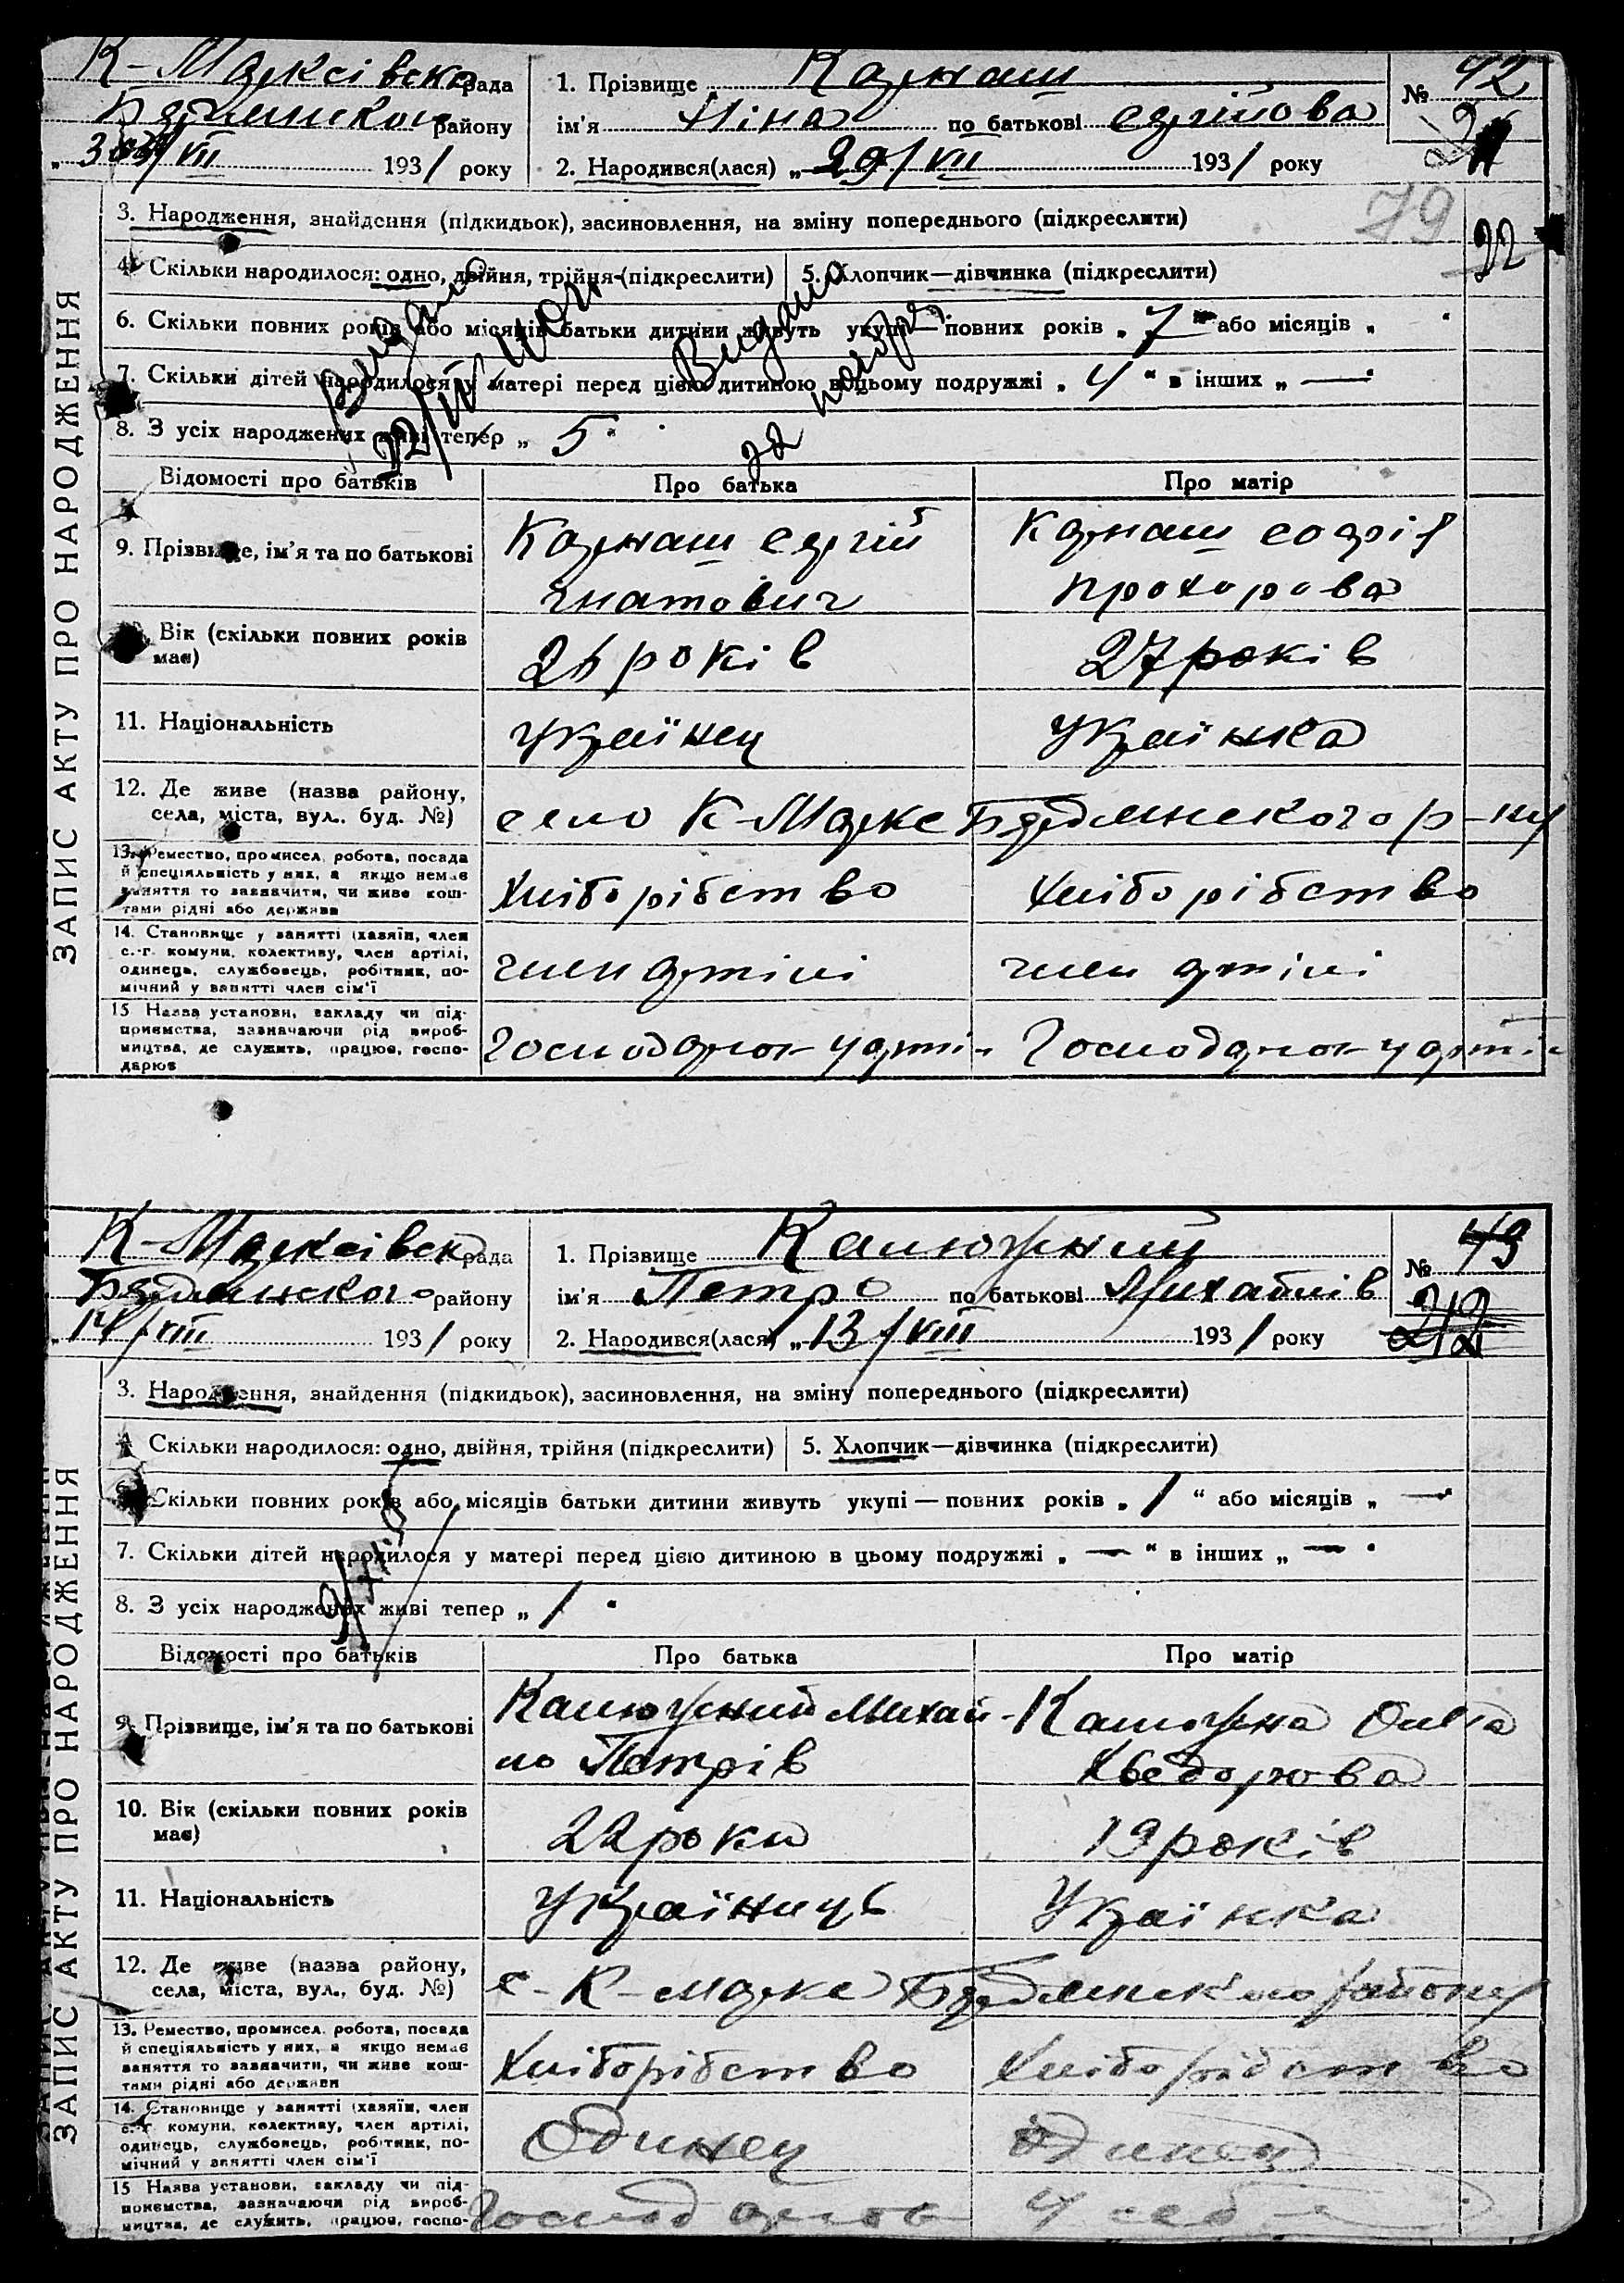 К-Марксівська рада
Бердянського району
"30/VII 1931 року
1. Прізвище Карнаш
ім'я Ніна по батькові Сергійова
2. Народився(лася) „29/VII 1931 року
№ 42
79
22
ЗАПИС АКТУ ПРО НАРОДЖЕННЯ
3. Народження, знайдення (підкидьок), засиновлення, на зміну попереднього (підкреслити)
4. Скільки народилося: одно, двійня, трійня (підкреслити) 5. Хлопчик—дівчинка (підкреслити)
6. Скільки повних років або місяців батьки дитини живуть укупі—повних років „ 7 “ або місяців „
7. Скільки дітей народилося у матері перед цією дитиною в цьому подружжі „ 4 “ в інших „ —
8. З усіх народжених живі тепер „ 5 “
Видано
Видано
Відомості про батьків Про батька Про матір
9. Прізвище, ім'я та по батькові Карнаш Сергій Карнаш Софія
Гнатович Прохорова
Вік (скільки повних років має) 26 років 27 років
11. Національність Українец Українка
12. Де живе (назва району, села, міста, вул., буд. №) село К-Маркс Бердянського р-ну
13. Ремество, промисел, робота, посада
й спеціяльність у них, а якщо немає
заняття то зазначити, чи живе кош-
тами рідні або держави
Хліборібство Хліборібство
14. Становище у занятті (хазяїн, член
с.-г. комуни, колективу, член артілі,
одинець, службовець, робітник, по-
мічний у занятті член сім'ї
член артілі член артілі
15 Назва установи, закладу чи під-
приємства, зазначаючи рід вироб-
ництва, де служить, працює, госпо-
дарює
Господарюк у арті- Господарюк у арті-
К-Марксівск рада
Бердянського району
„14/VIII 1931 року
1. Прізвище Калюжний
ім'я Петро по батькові Михайлів
2. Народився(лася) „13/VIII 1931 року
№ 43
ЗАПИС АКТУ ПРО НАРОДЖЕННЯ
3. Народження, знайдення (підкидьок), засиновлення, на зміну попереднього (підкреслити)
4 Скільки народилося: одно, двійня, трійня (підкреслити) 5. Хлопчик—дівчинка (підкреслити)
6. Скільки повних років або місяців батьки дитини живуть укупі — повних років „ 1 “ або місяців „ —
7. Скільки дітей народилося у матері перед цією дитиною в цьому подружжі „ — “ в інших „ —
8. З усіх народжених живі тепер „ 1 “
Відомості про батьків Про батька Про матір
9. Прізвище, ім'я та по батькові Калюжний Михай- Калюжна Олга
ло Петрів Хведорова
10. Вік (скільки повних років має) 22 роки 19 років
11. Національність Україниць Українка
12. Де живе (назва району, села, міста, вул., буд. №) с-К-Маркс Бердянського району
13. Ремество, промисел, робота, посада
й спеціяльність у них, а якщо немає
заняття то зазначити, чи живе кош-
тами рідні або держави
Хліборібство Хліборібство
14. Становище у занятті (хазяїн, член
с.-г. комуни, колективу, член артілі,
одинець, службовець, робітник, по-
мічний у занятті член сім'ї
Одинец Одинец
15 Назва установи, закладу чи під-
приємства, зазначаючи рід вироб-
ництва, де служить, працює, госпо-